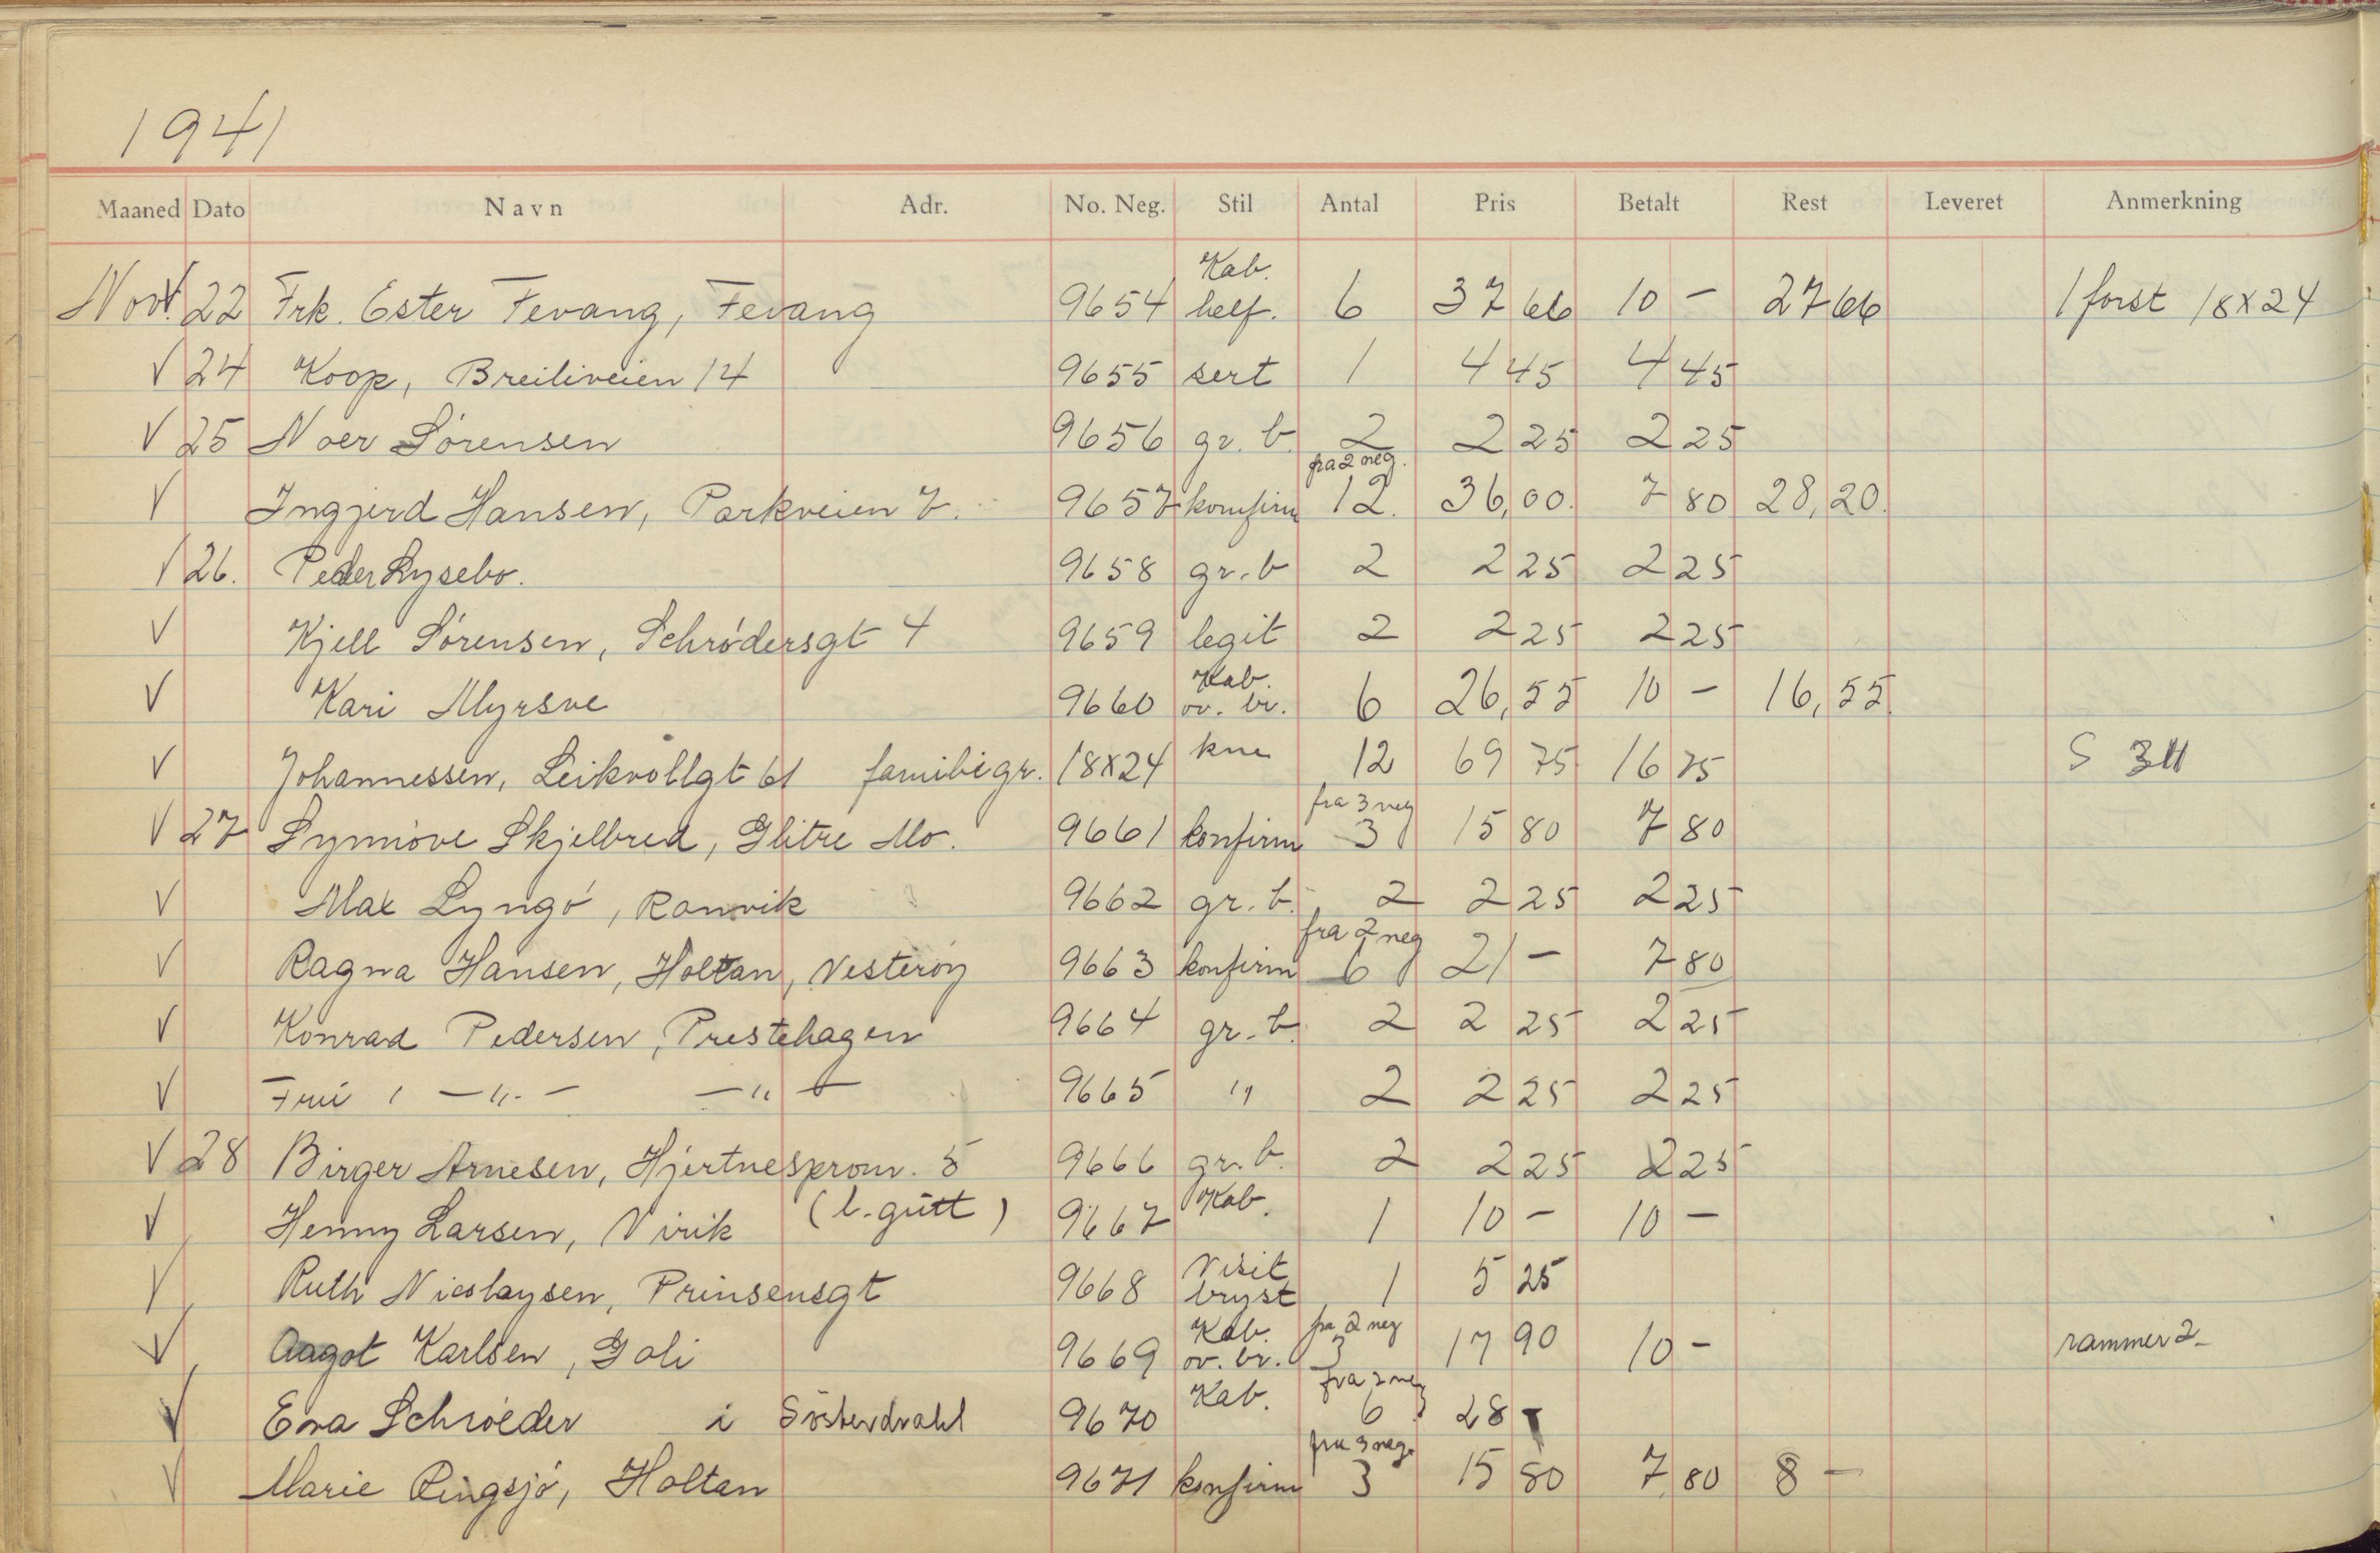 1941
Maaned Dato Navn Adr. No. Neg. Stil Antal Pris Betalt Rest Leveret Anmerkning
Nov. 22 Frk. Ester Fevang, Fevang 9654 Kab. helf. 6 37 66 10 - 27 66 1 forst 18x24
V 24 Koop, Breiliveien 14 9655 sert 1 4 45 4 45
V 25 Noer Sørensen 9656 gr. b. 2 2 25 2 25
V Ingjerd Hansen, Parkveien 7. 9657 konfirm fra 2 neg. 12. 36,00. 7 80 28,20.
V 26. Peder Lysebo. 9658 gr. b 2 2 25 2 25
V Kjell Sørensen, Schrødersgt 4 9659 legit 2 2 25 2 25
V Kari Myrsve 9660 Kab. ov. br. 6 26,55 10 - 16,55.
V Johannessen, Leikvollgt 61 familiegr. 18x24 kne 12 69 75 16 75 S
V 27 Synnøve Skjelbred, Glitre Mo. 9661 konfirm fra 3 neg 3 15 80 7 80
V Max Lyngø, Ranvik 9662 gr. b. 2 2 25 2 25
V Ragna Hansen, Holtan, Vesterøy 9663 konfirm fra 2 neg 6 21 - 7 80
V Konrad Pedersen, Prestehagen 9664 gr. b. 2 2 25 2 25
V Fru -"- -"- 9665 " 2 2 25 2 25
V 28 Birger Arnesen, Hjertnesprom. 5 9666 gr. b. 2 2 25 2 25
V Henny Larsen, Virik (l. gutt) 9667 Kab. 1 10 - 10 -
V Ruth Nicolaysen, Prinsensgt 9668 Visit bryst 1 5 25
V Aagot Karlsen, Goli 9669 Kab. ov. br. fra 2 neg 3 17 90 10 - rammer 2
V Eva Schrøeder i Søsterdrakt 9670 Kab. fra 2 neg 6 28 -
V Marie Ringsjø, Holtan 9671 konfirm fra 3 neg. 3 15 80 7 80 8 -